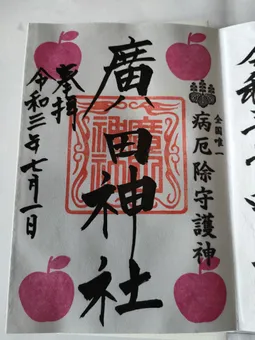 全国唯一
病厄除守護神
廣田神社
奉拝
令和三年七月一日